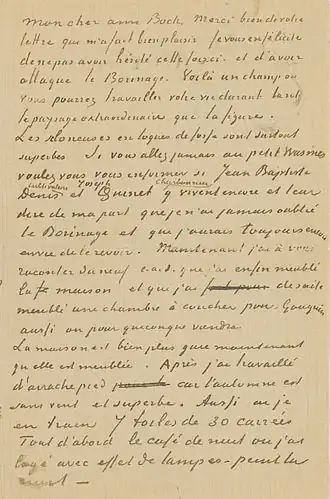 mon cher ami Boch, Merci bien de votre
lettre qui m'a fait bien plaisir je vous en félicite
de ne pas avoir hésité cette fois ci et d'avoir
attaqué le Borinage. Voilà un champ ou
vous pourrez travailler votre vie durant tant
le paysage extraordinaire que la figure.
Les scloneuses en loques de fosse sont surtout
superbes Si vous allez jamais au petit Wasmes
voulez vous vous informer si Jean Baptiste
cultivateur Joseph charbonnier
Denis et Quinet y vivent encore et leur
dire de ma part que je n'ai jamais oublié
le Borinage et que j'aurais toujours encore
envie de le revoir. Maintenant j'ai à vous
raconter du neuf c.a.d. que j'ai enfin meublé
la maison et que j'ai de suite
meublé une chambre à coucher pour Gauguin
aussi ou pour quiconque viendra
La maison est bien plus gaie maintenant
qu'elle est meublée. Après j'ai travaillé
d'arrache pied car l'automne est
sans vent et superbe. Aussi ai je
en train 7 toiles de 30 carrées
Tout d'abord le café de nuit ou j'ai
logé avec effet de lampes - peint la
nuit -